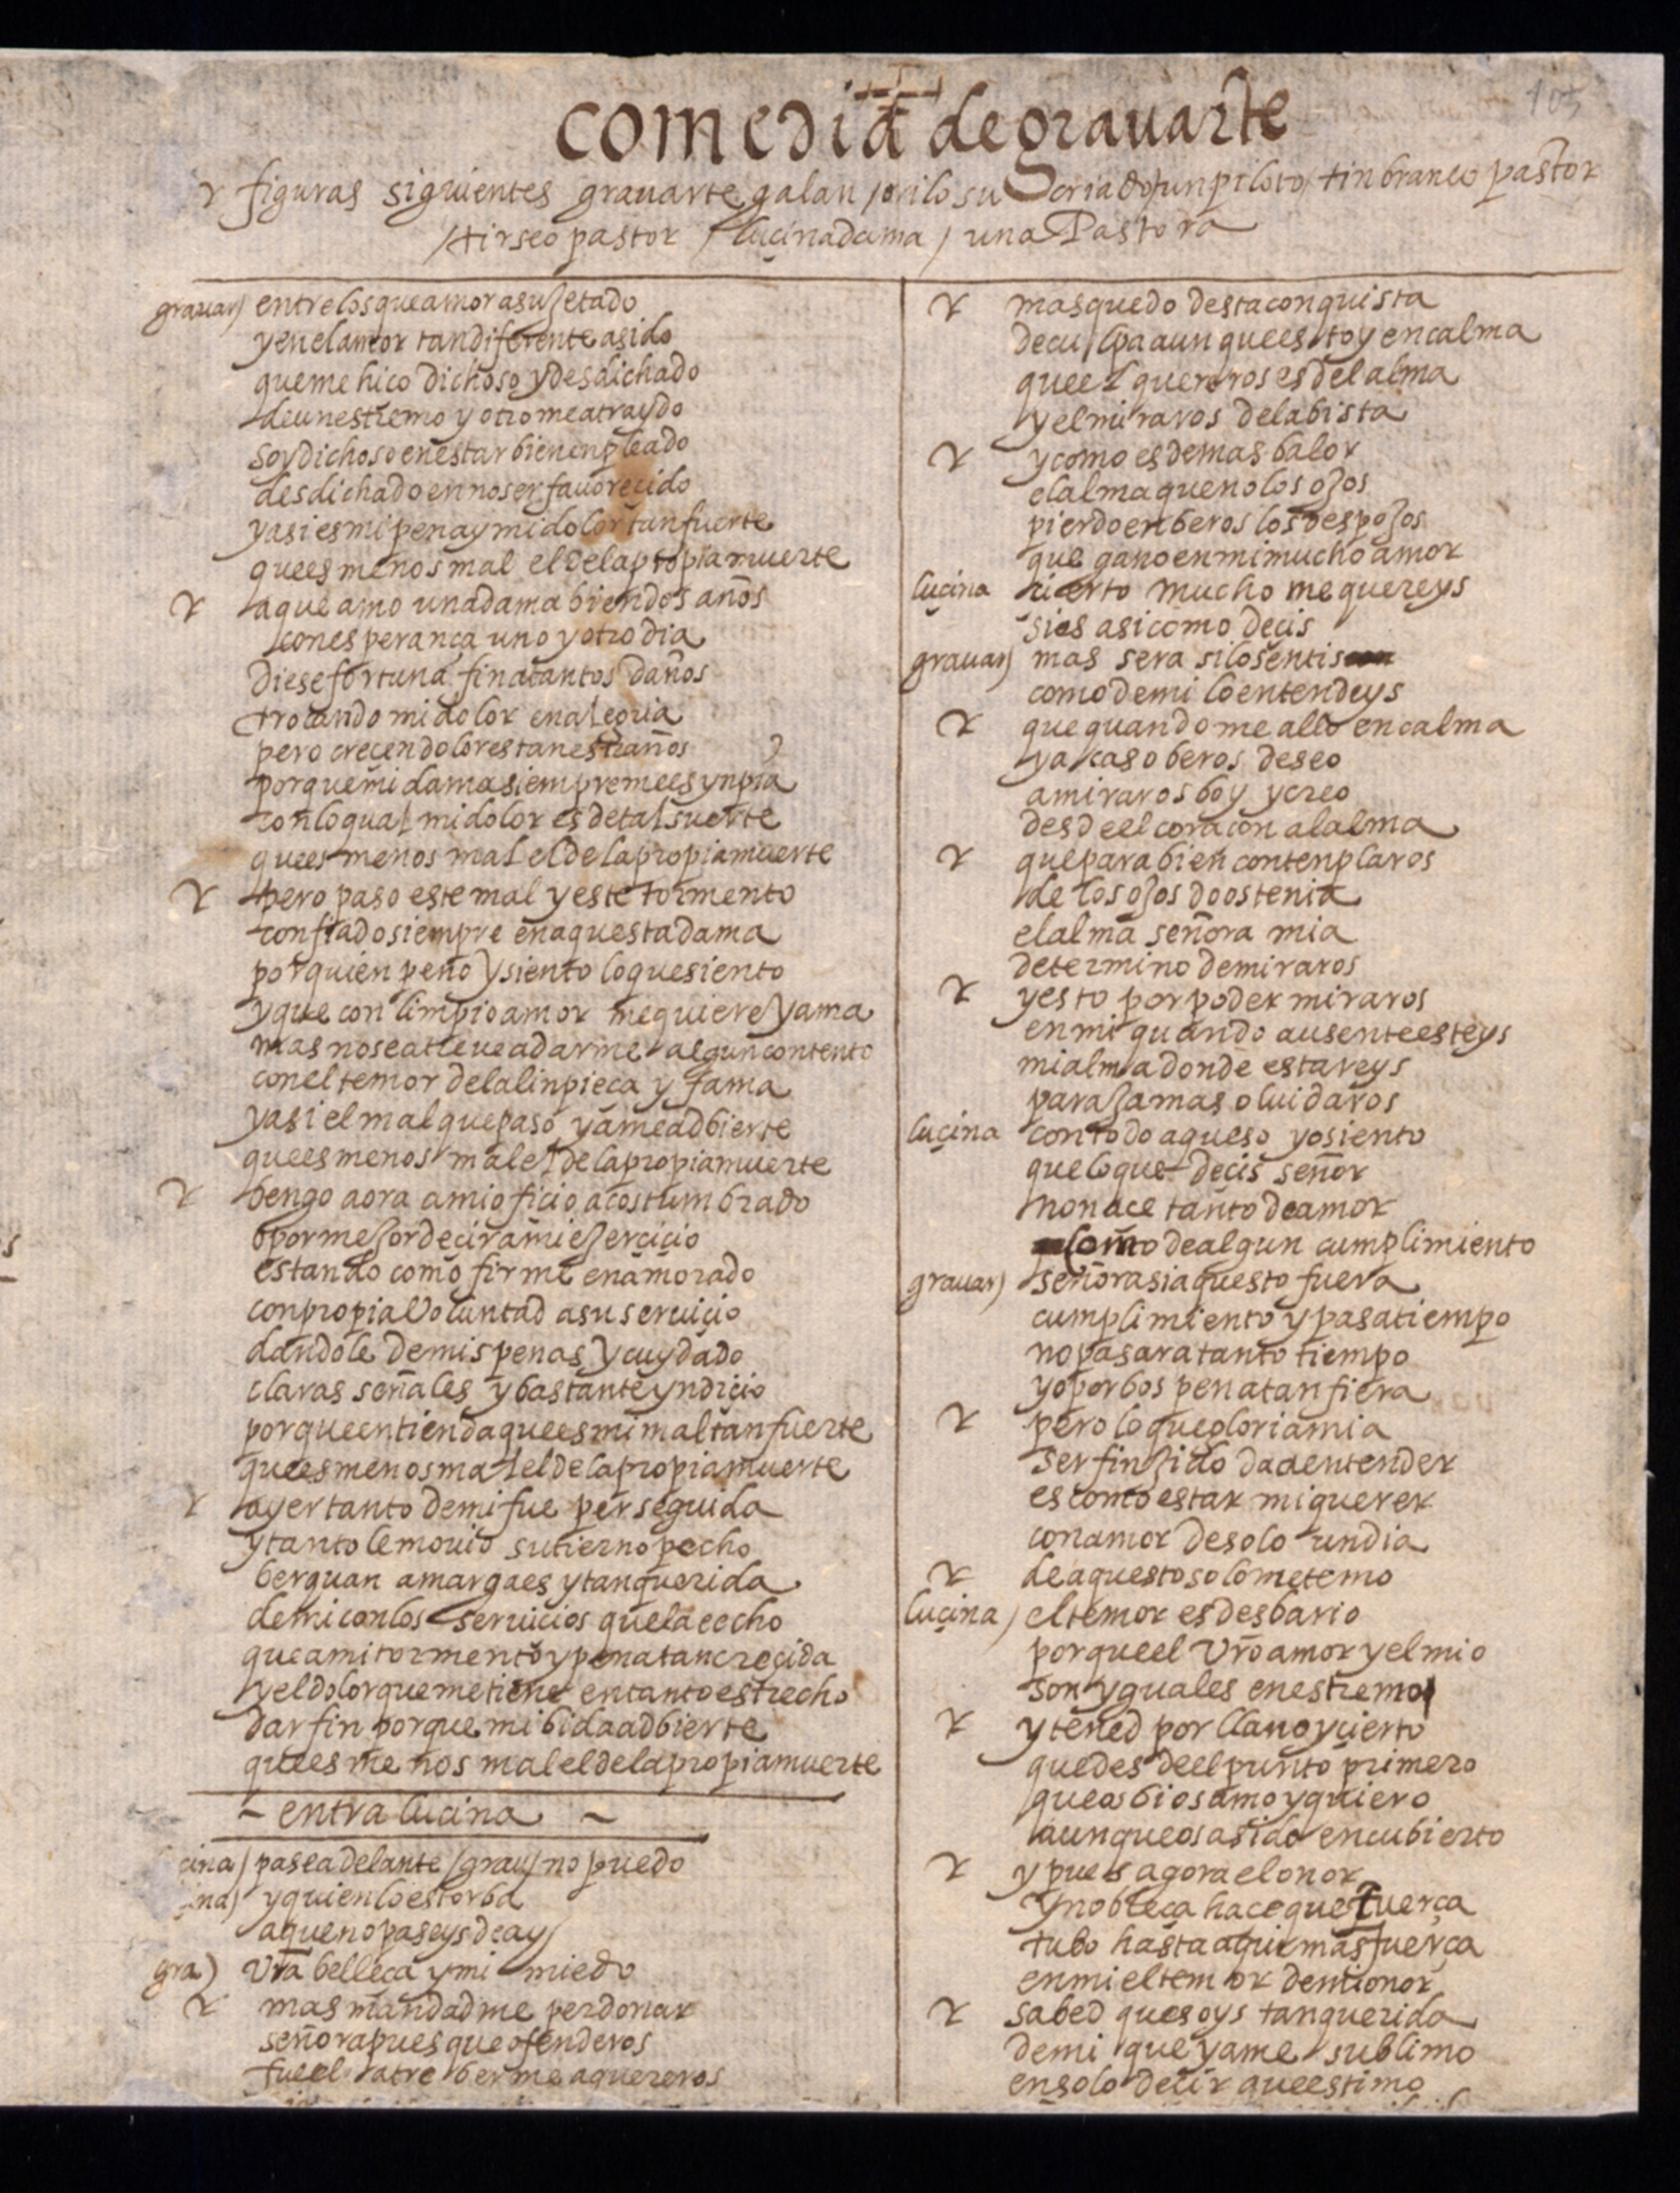 105
comedia de grauarte
figuras siguientes grauarte galan / orilo su criado / un piloto / tinbraneo pastor
/ tirseo pastor / lucina dama / una Pastora
grauar) entre los que amor a sujetado
y en el amor tan diferente a sido
que me hico dichoso y desdichado
de un estremo y otro me a traydo
soy dichoso en estar bien enpleado
desdichado en no ser fauorecido
y asi es mi pena y mi dolor tan fuerte
que es menos mal el de la propia muerte
a que amo una dama bien dos años
con esperança uno y otro dia
diese fortuna fin a tantos daños
trocando mi dolor en alegria
pero crecen dolores tan estraños
porque mi dama siempre me es ynpia
con lo qual mi dolor es de tal suerte
que es menos mal el de la propia muerte
pero paso este mal y este tormento
confiado siempre en aquesta dama
por quien peno y siento lo que siento
y que con limpio amor me quiere y ama
mas no se atreue a darme algun contento
con el temor de la linpieça y fama
y asi el mal que paso ya me adbierte
que es menos mal el de la propia muerte
bengo aora a mi oficio acostumbrado
o por mejor decir a mi ejercicio
estando como firme enamorado
con propia Voluntad a su seruicio
dandole de mis penas y cuydado
claras señales y bastante yndicio
porque entienda que es mi mal tan fuerte
que es menos mal el de la propia muerte
ayer tanto de mi fue perseguida
y tanto le mouio su tierno pecho
ber quan amarga es y tan querida
de mi con los seruicios que la e echo
que a mi tormento y pena tan crecida
y el dolor que me tiene en tanto estrecho
dar fin porque mi bida adbierte
que es menos mal el de la propia muerte
~ entra lucina ~
cina) pase adelante / grau) no puedo
ina) y quien lo estorba
a que no paseys de ay /
gra) Vra belleça y mi miedo
mas mandadme perdonar
señora pues que ofenderos
fue el atreberme a quereros
mas quedo desta conquista
de culpa aunque estoy en calma
que el quereros es del alma
y el miraros de la bista
y como es de mas balor
el alma que no los ojos
pierdo en beros los despojos
que gano en mi mucho amor
lucina cierto mucho me quereys
si es asi como decis
grauar) mas sera si lo sentis
como de mi lo entendeys
que quando me allo en calma
y acaso beros deseo
a miraros boy y creo
desde el coraçon al alma
que para bien contenplaros
de los ojos do os tenia
el alma señora mia
determino de miraros
y esto por poder miraros
en mi quando ausente esteys
mi alma donde estareys
para jamas oluidaros
lucina con todo aqueso yo siento
que lo que decis señor
no nace tanto de amor
como de algun cumplimiento
grauar) señora si aquesto fuera
cumplimiento y pasatiempo
no pasara tanto tiempo
yo por bos pena tan fiera
pero lo que gloria mia
ser finjido da a entender
es como estar mi querer
con amor de solo un dia
de aquesto solo me temo
lucina) el temor es desbario
porque el Vro amor y el mio
son yguales en estremo
y tened por llano y cierto
que desde el punto primero
que os bi os amo y quiero
aunque os a sido encubierto
y pues agora el onor
y nobleça hace que tuerça
tubo hasta aqui mas fuerça
en mi el temor de mi onor
sabed que soys tan querido
de mi que ya me sublimo
en solo decir que estimo